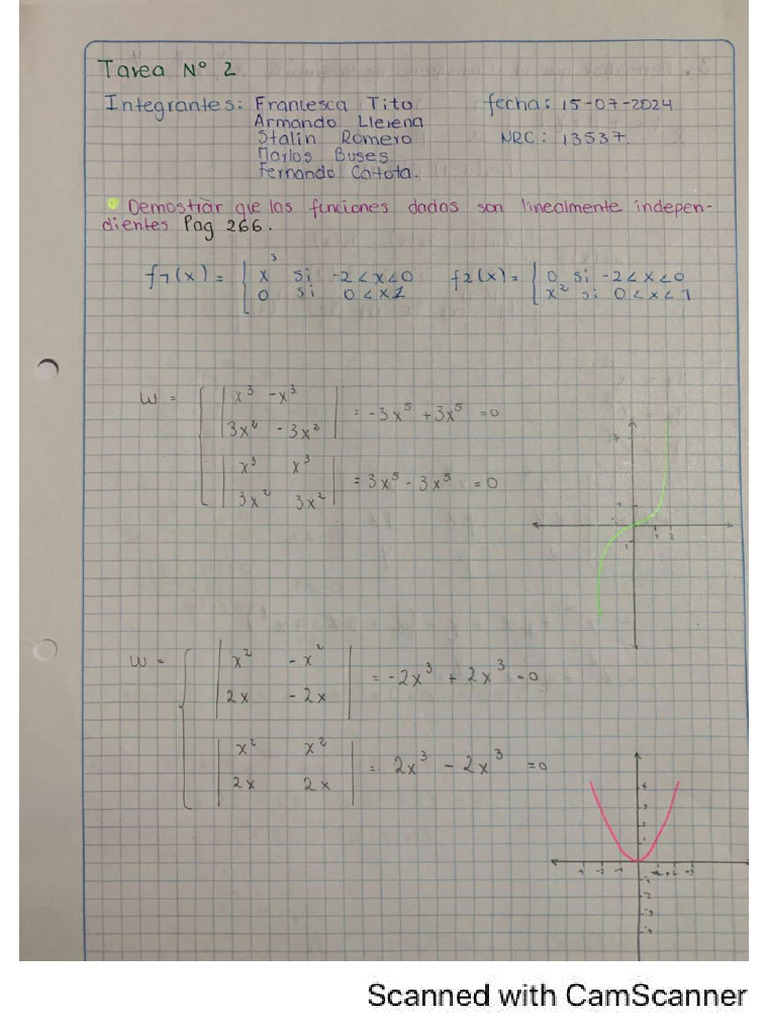 Tarea N° 2
Integrantes: Francesca Tito fecha: 15-07-2024
Armando Llerena
Stalin Romero NRC: 13537.
Marlos Buses
Fernando Catota.
Demostrar que las funciones dadas son linealmente indepen-
dientes Pag 266.
f1(x) = { x³ si -2<x<0 f2(x) = { 0 si -2<x<0
0 si 0<x1 x² si 0<x<1
W = { | x³ -x³ |
| 3x² -3x² | = -3x⁵ + 3x⁵ = 0
| x³ x³ |
| 3x² 3x² | = 3x⁵ - 3x⁵ = 0
W = { | x² -x² |
| 2x -2x | = -2x³ + 2x³ = 0
| x² x² |
| 2x 2x | = 2x³ - 2x³ = 0
Scanned with CamScanner